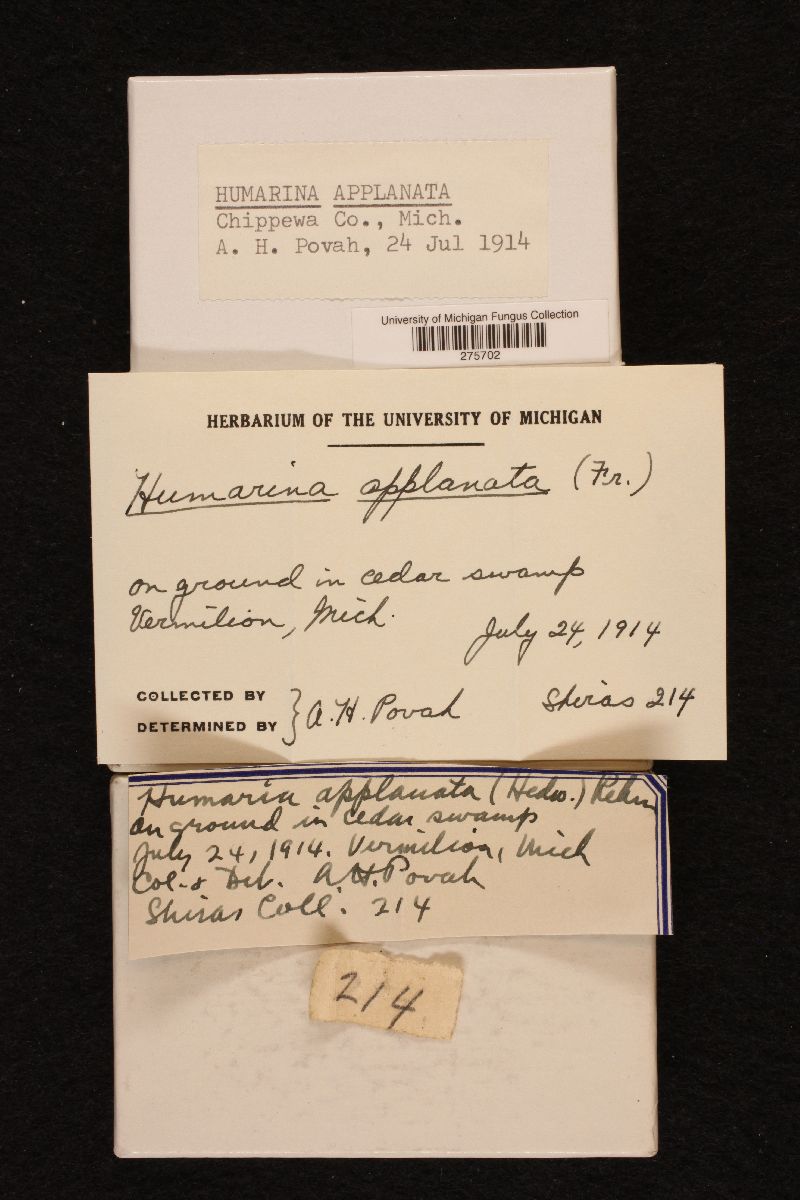 HUMARINA APPLANATA
Chippewa Co., Mich.
A. H. Povah, 24 Jul 1914
University of Michigan Fungus Collection
275702
HERBARIUM OF THE UNIVERSITY OF MICHIGAN
Humarina applanata (Fr.)
on ground in cedar swamp
Vermilion, Mich.
July 24, 1914
COLLECTED BY
DETERMINED BY } A. H. Povah
Shiras 214
Humaria applanata (Hedw.) Rehm
on ground in cedar swamp
July 24, 1914. Vermilion, Mich
Col. & Det. A. H. Povah
Shiras Coll. 214
214